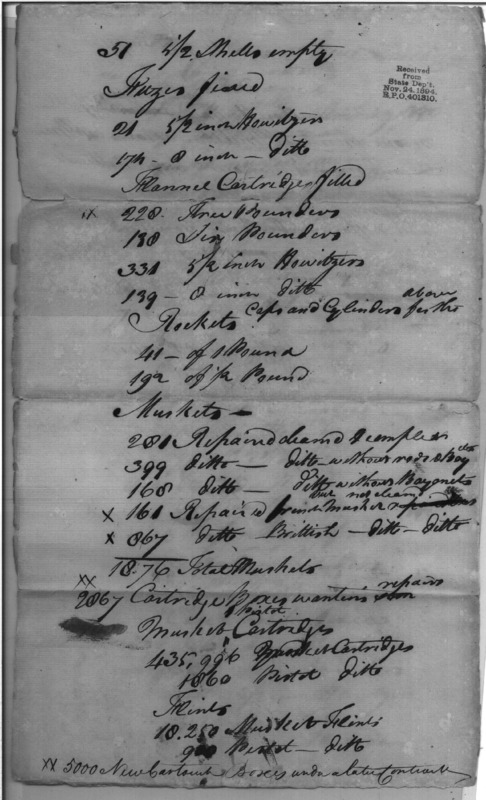 51 5½ Shells empty
Received
from
State Dep't.
Nov. 24, 1894.
R.P.O. 401810.
Fuzes fixed
21 5½ inch Howitzers
174 - 8 inch - ditto
Flannel Cartridges filled
228. Three Pounders
188 Six Pounders
331 5½ inch Howitzers
139 - 8 inch ditto
Rockets Caps and Cylinders for the above
41 - of 1 Pound
192 of ½ Pound
Muskets -
281 Repaired cleand & compleat
399 ditto - ditto without rods & Bayts
168 ditto - ditto without Bayonets
x 161 Repaired french Muskets but not cleand
x 867 ditto Brittish - ditto - ditto
18.76 Total Muskets
xx 2867 Cartridge Boxes wanting repairs
Musket Cartridges
435,996 Musket Cartridges
1860 Pistol ditto
Flints
18.250 Musket Flints
Pistol - ditto
xx 5000 New Cartouch Boxes under a late Contract